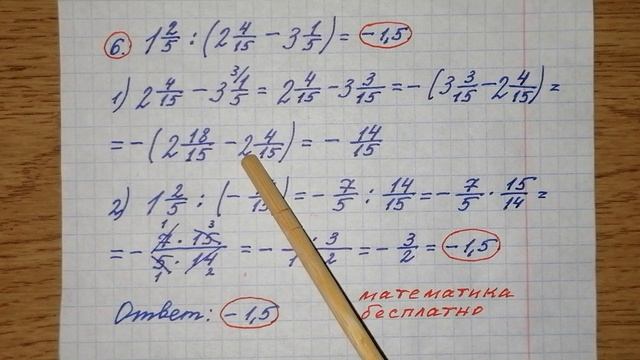 6. 1 2/5 : (2 4/15 - 3 1/5) = -1,5
1) 2 4/15 - 3 3/1/5 = 2 4/15 - 3 3/15 = -(3 3/15 - 2 4/15) =
= -(2 18/15 - 2 4/15) = - 14/15
2) 1 2/5 : (- /15) = - 7/5 : 14/15 = - 7/5 · 15/14 =
= - 7 · 15/5 · 14 1 3 1 2 = - · 3/1 2 = - 3/2 = -1,5
Ответ: -1,5
математика
бесплатно